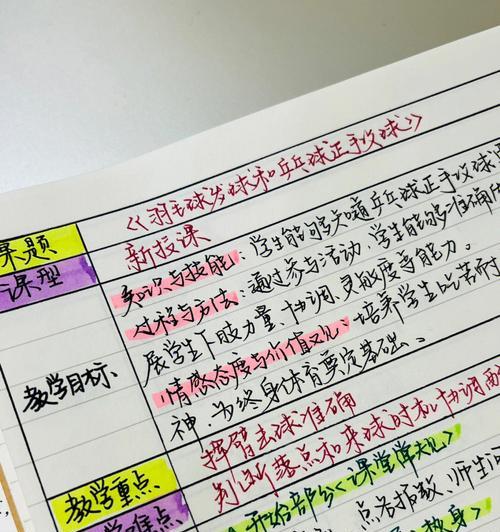 课题 《羽毛球发球和乒乓球正手攻球》
课型 新授课
教学目标 知识与技能:学生能够知道乒乓球正手攻球
过程与方法:通过参与活动,学生能够准确
展学生下肢力量、协调、灵敏度等能力。
情感态度与价值观:培养学生吃苦耐
神,为终身体育奠定基础。
教学重点 挥臂击球准确
教学难点 判断落点和来球时机,协调
开始部分《课堂常规》
点名报数、师生问
热身》